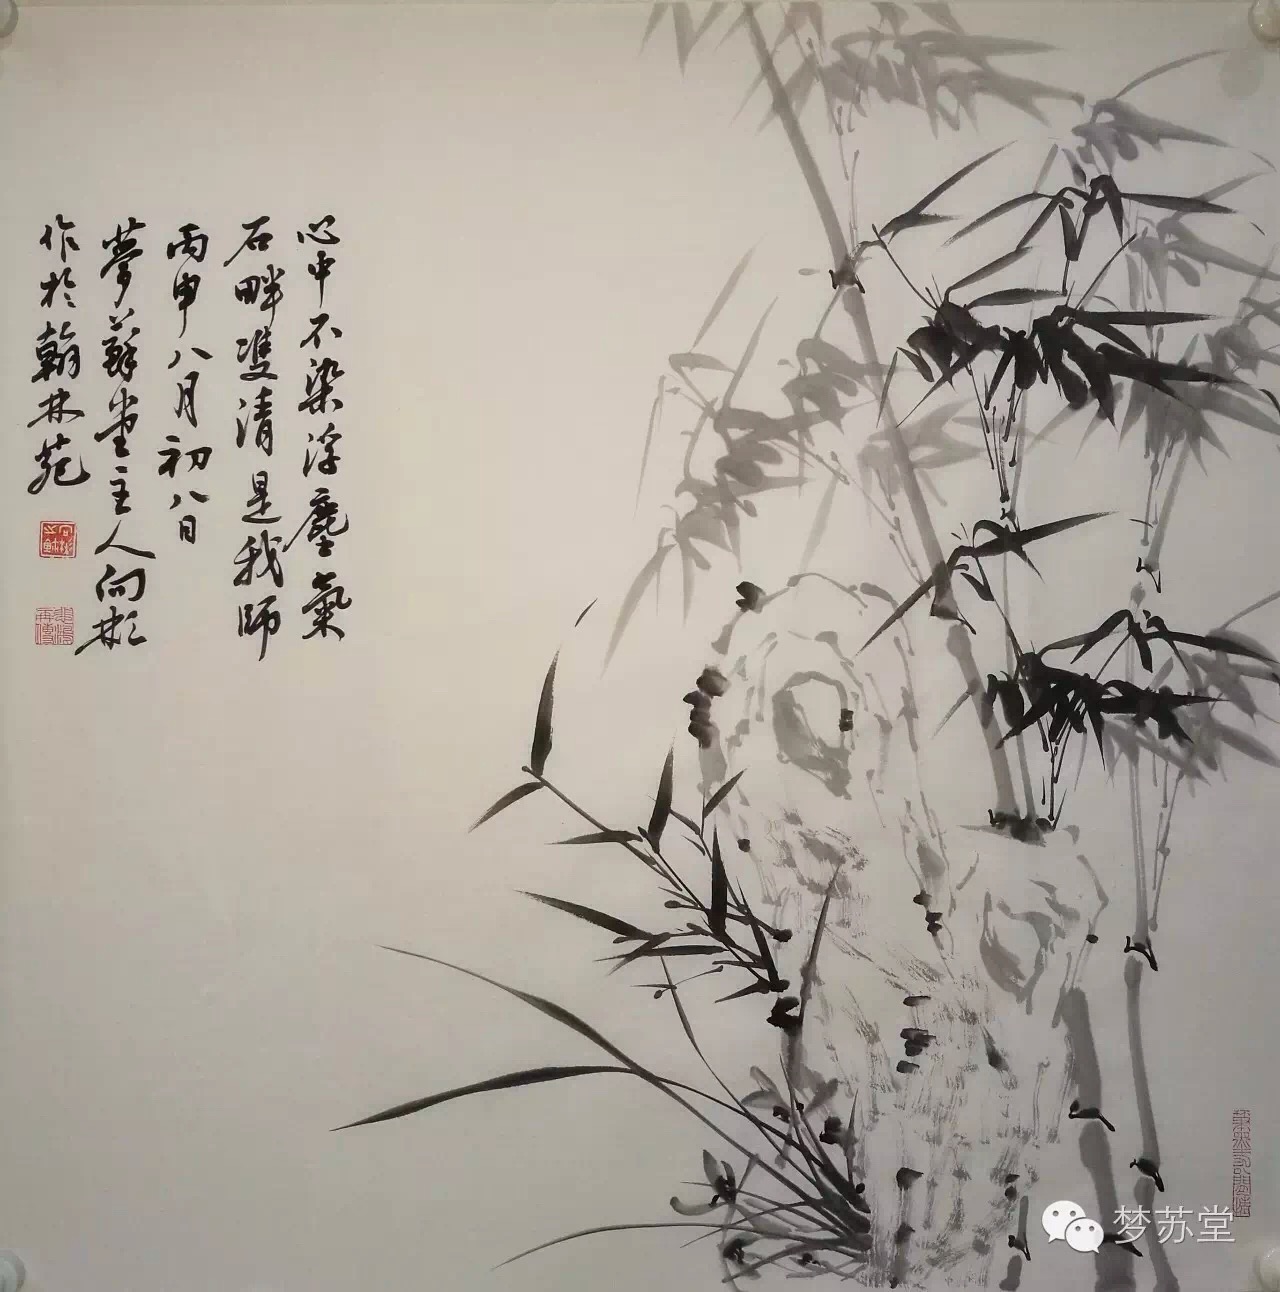 心中不染浮塵氣
石畔雙清是我師
丙申八月初八日
夢蘇堂主人向彬
作於翰林苑
梦苏堂